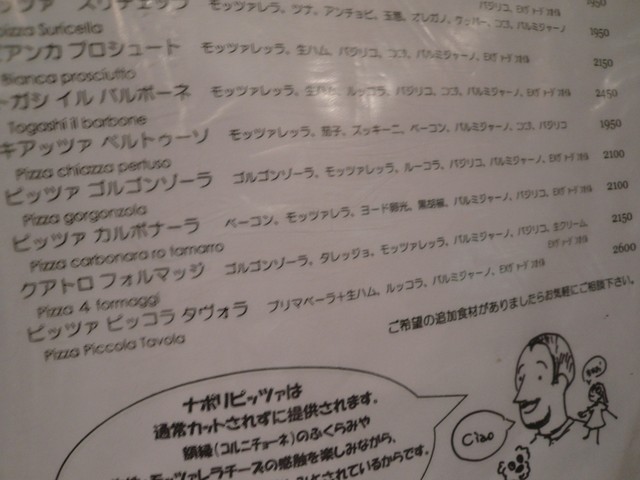 モッツァレラ、ツナ、アンチョビ、玉葱、オレガノ、ケッパー、ココ、パルミジャーノ
pizza Suricella
1950
アンカ プロシュート モッツァレッラ、生ハム、バジリコ、ココ、パルミジャーノ、EXヴァードオイル 2150
Bianca prosciutto
ガシ イル バルボーネ モッツァレッラ、生ハム、ルッコラ、バジリコ、ココ、パルミジャーノ、EXヴァードオイル 2450
Togashi il barbone
キアッツァ ペルトゥーソ モッツァレッラ、茄子、ズッキーニ、ベーコン、パルミジャーノ、ココ、バジリコ 1950
Pizza chiazza pertuso
ピッツァ ゴルゴンゾーラ ゴルゴンゾーラ、モッツァレッラ、ルーコラ、バジリコ、パルミジャーノ、EXヴァードオイル 2100
Pizza gorgonzola
ピッツァ カルボナーラ ベーコン、モッツァレラ、ヨード卵光、黒胡椒、パルミジャーノ、バジリコ、EXヴァードオイル 2100
Pizza carbonara ro tamarro
クアトロ フォルマッジ ゴルゴンゾーラ、タレッジョ、モッツァレッラ、パルミジャーノ、バジリコ、生クリーム、EXヴァードオイル 2150
Pizza 4 formaggi
ピッツァ ピッコラ タヴォラ プリマベーラ+生ハム、ルッコラ、パルミジャーノ、EXヴァードオイル 2600
Pizza Piccola Tavola
ご希望の追加食材がありましたらお気軽にご相談下さい。
ナポリピッツァは
通常カットされずに提供されます。
額縁(コルニチョーネ)のふくらみや
モッツァレラチーズの感触を楽しみながら、
とされているからです。
Ciao